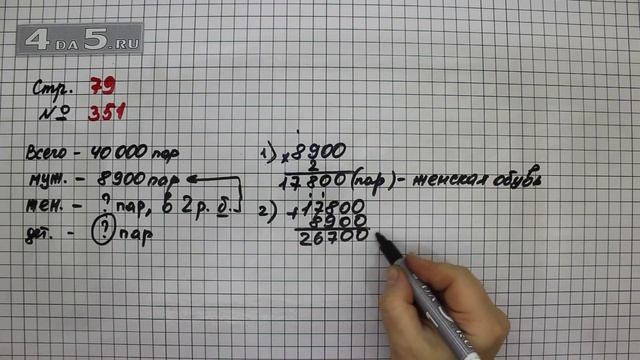 4 DA 5.RU
Стр. 79
№ 351
Всего - 40 000 пар
муж. - 8 900 пар
жен. - ? пар, в 2 р. б.
дет. - ? пар
1) × 8900
2
17800 (пар) - женская обувь
2) + 17800
8900
26700